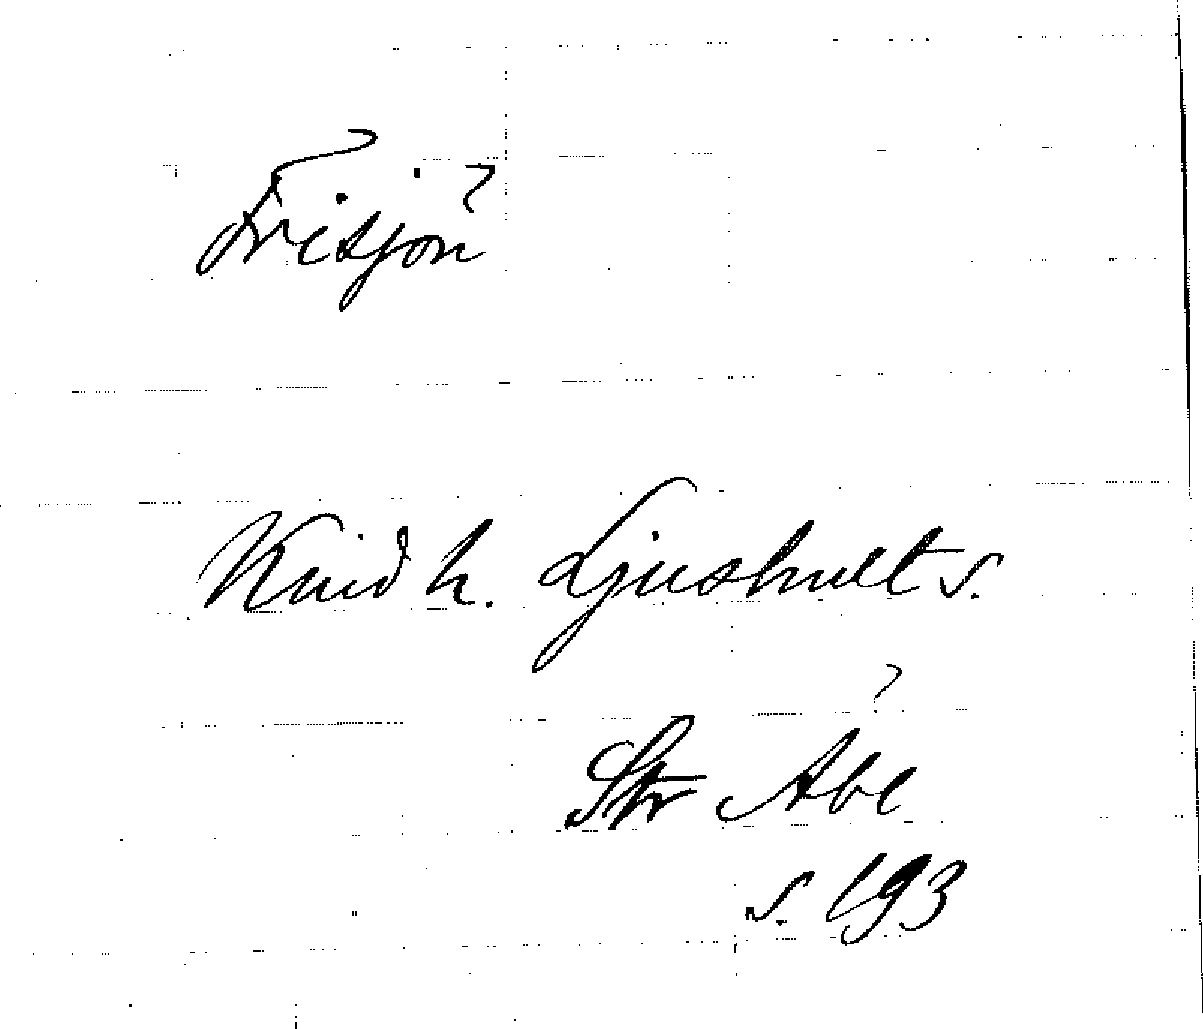 Frisjön
Kind h. Ljushult s.
Str Abl
s. 193